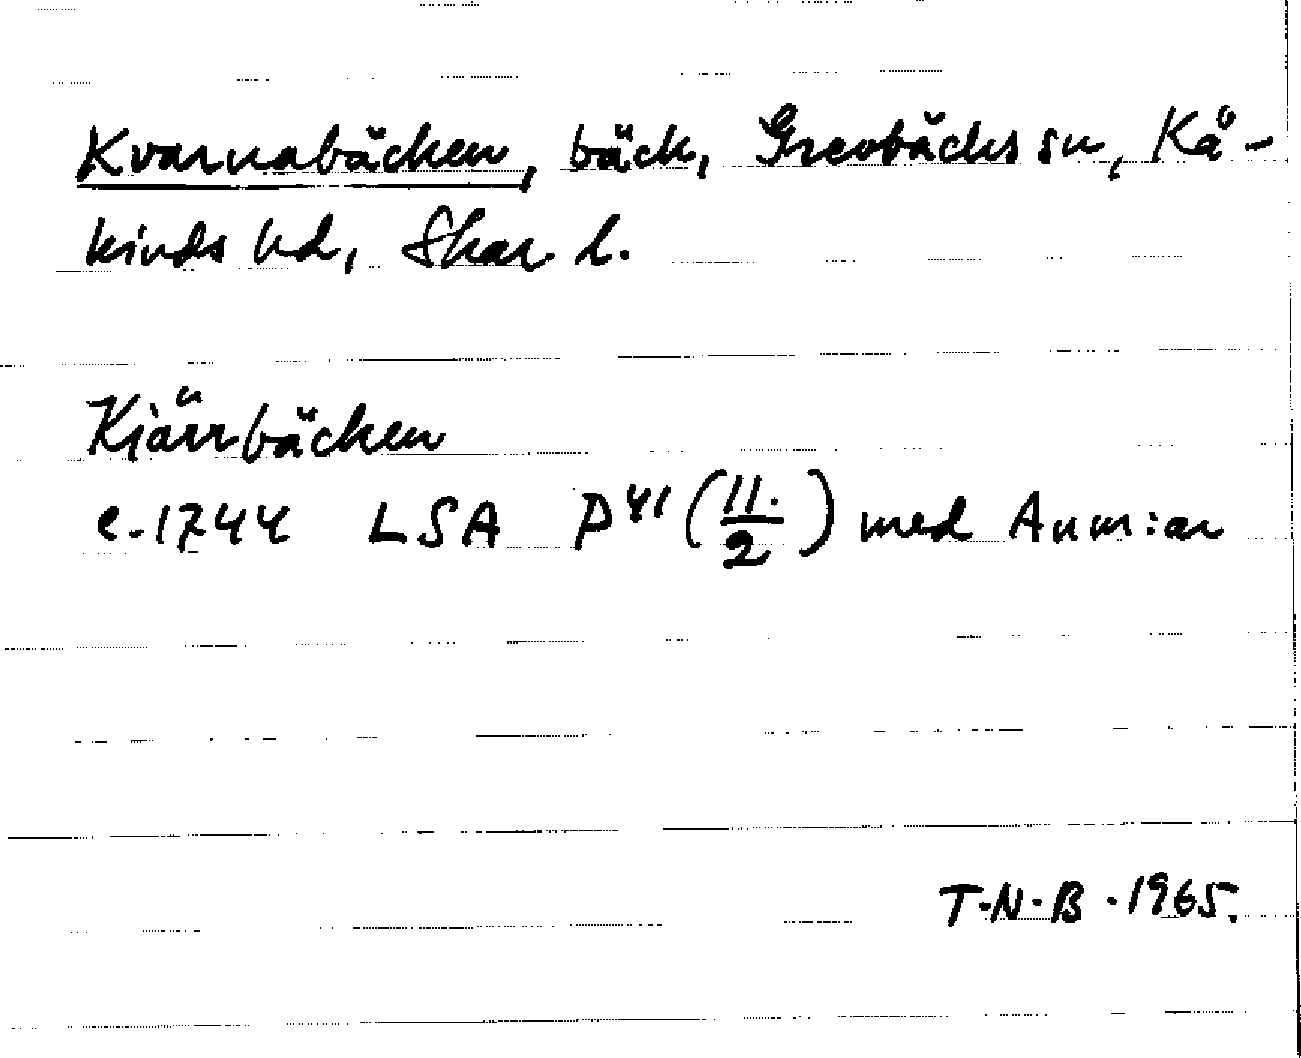 Kvarnabäcken, bäck, Grevbäcks sn, Kå-
kinds hd, Skar. l.
Kiärrbäcken
c. 1744 LSA P⁴¹ (11./2) med Anm:ar
T.N.B. 1965.